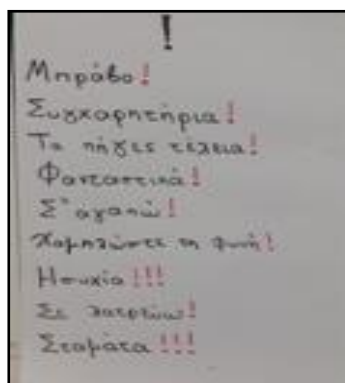 !
Μπράβο!
Συγχαρητήρια!
Τα πήγες τέλεια!
Φανταστικά!
Σ' αγαπώ!
Χαμηλώστε τη φωνή!
Ησυχία!!!
Σε λατρεύω!
Σταμάτα!!!